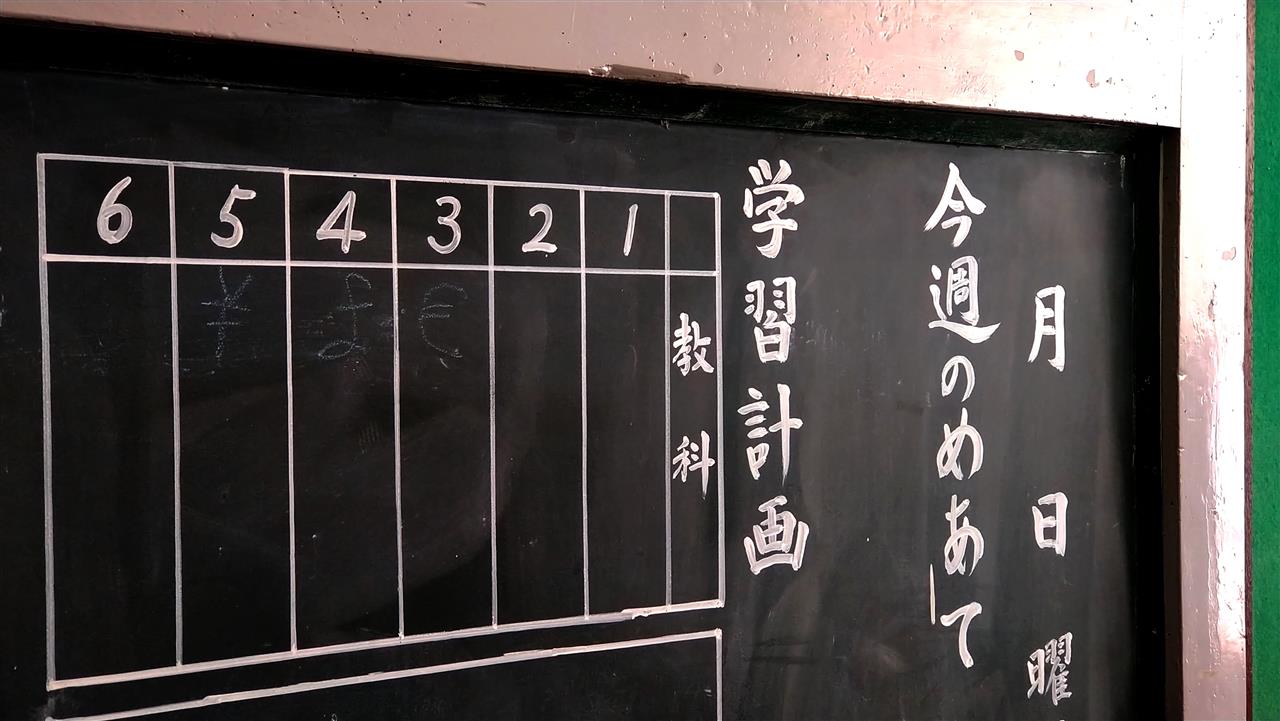 月 日 曜
今週のめあて
学習計画
教科
1 2 3 4 5 6
€ £ ¥